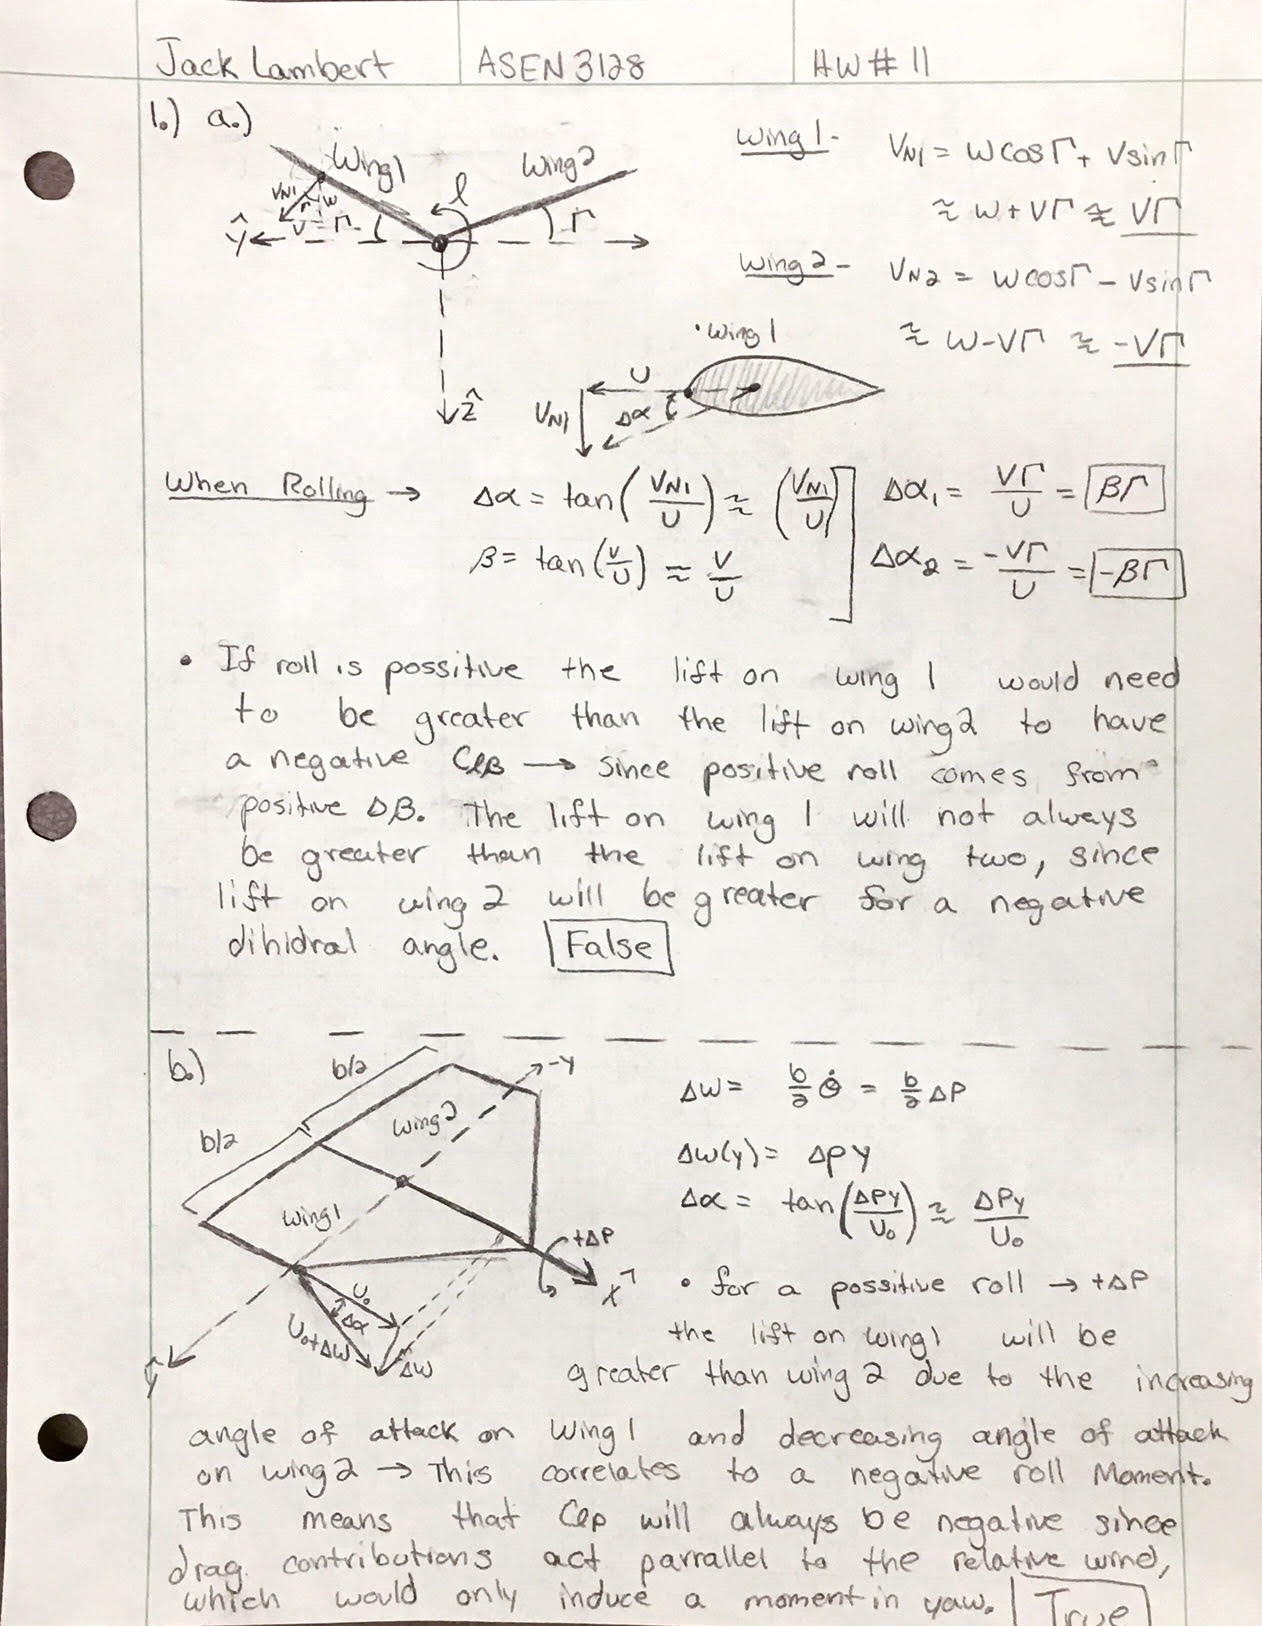 Jack Lambert ASEN 3128 HW # 11
1.) a.)
Wing1 Wing2
Wing 1- VN1 = WcosΓ + VsinΓ
VN1 Γ W l
V Γ Γ
ŷ
≈ W + VΓ ≈ VΓ
Wing 2- VN2 = WcosΓ - VsinΓ
≈ W-VΓ ≈ -VΓ
• Wing 1
ẑ
U
VN1 Δα
When Rolling → Δα = tan(VN1/U) ≈ (VN1/U) Δα1 = VΓ/U = βΓ
β = tan(V/U) ≈ V/U Δα2 = -VΓ/U = -βΓ
• If roll is possitive the lift on wing 1 would need
to be greater than the lift on wing2 to have
a negative Clβ → since positive roll comes from
positive Δβ. The lift on wing 1 will not always
be greater than the lift on wing two, since
lift on wing 2 will be greater for a negative
dihidral angle. False
b.)
b/2 -Y
b/2 Wing2
Wing1
ΔW = b/2 θ̇ = b/2 ΔP
ΔW(y) = ΔPY
Δα = tan(ΔPY/U0) ≈ ΔPY/U0
+ΔP
X
U0
Δα
U0+ΔW
ΔW
ŷ
• for a possitive roll → +ΔP
the lift on wing1 will be
greater than wing 2 due to the increasing
angle of attack on Wing 1 and decreasing angle of attack
on wing 2 → This correlates to a negative roll Moment.
This means that Clp will always be negative since
drag contributions act parrallel to the relative wind,
which would only induce a moment in yaw. True